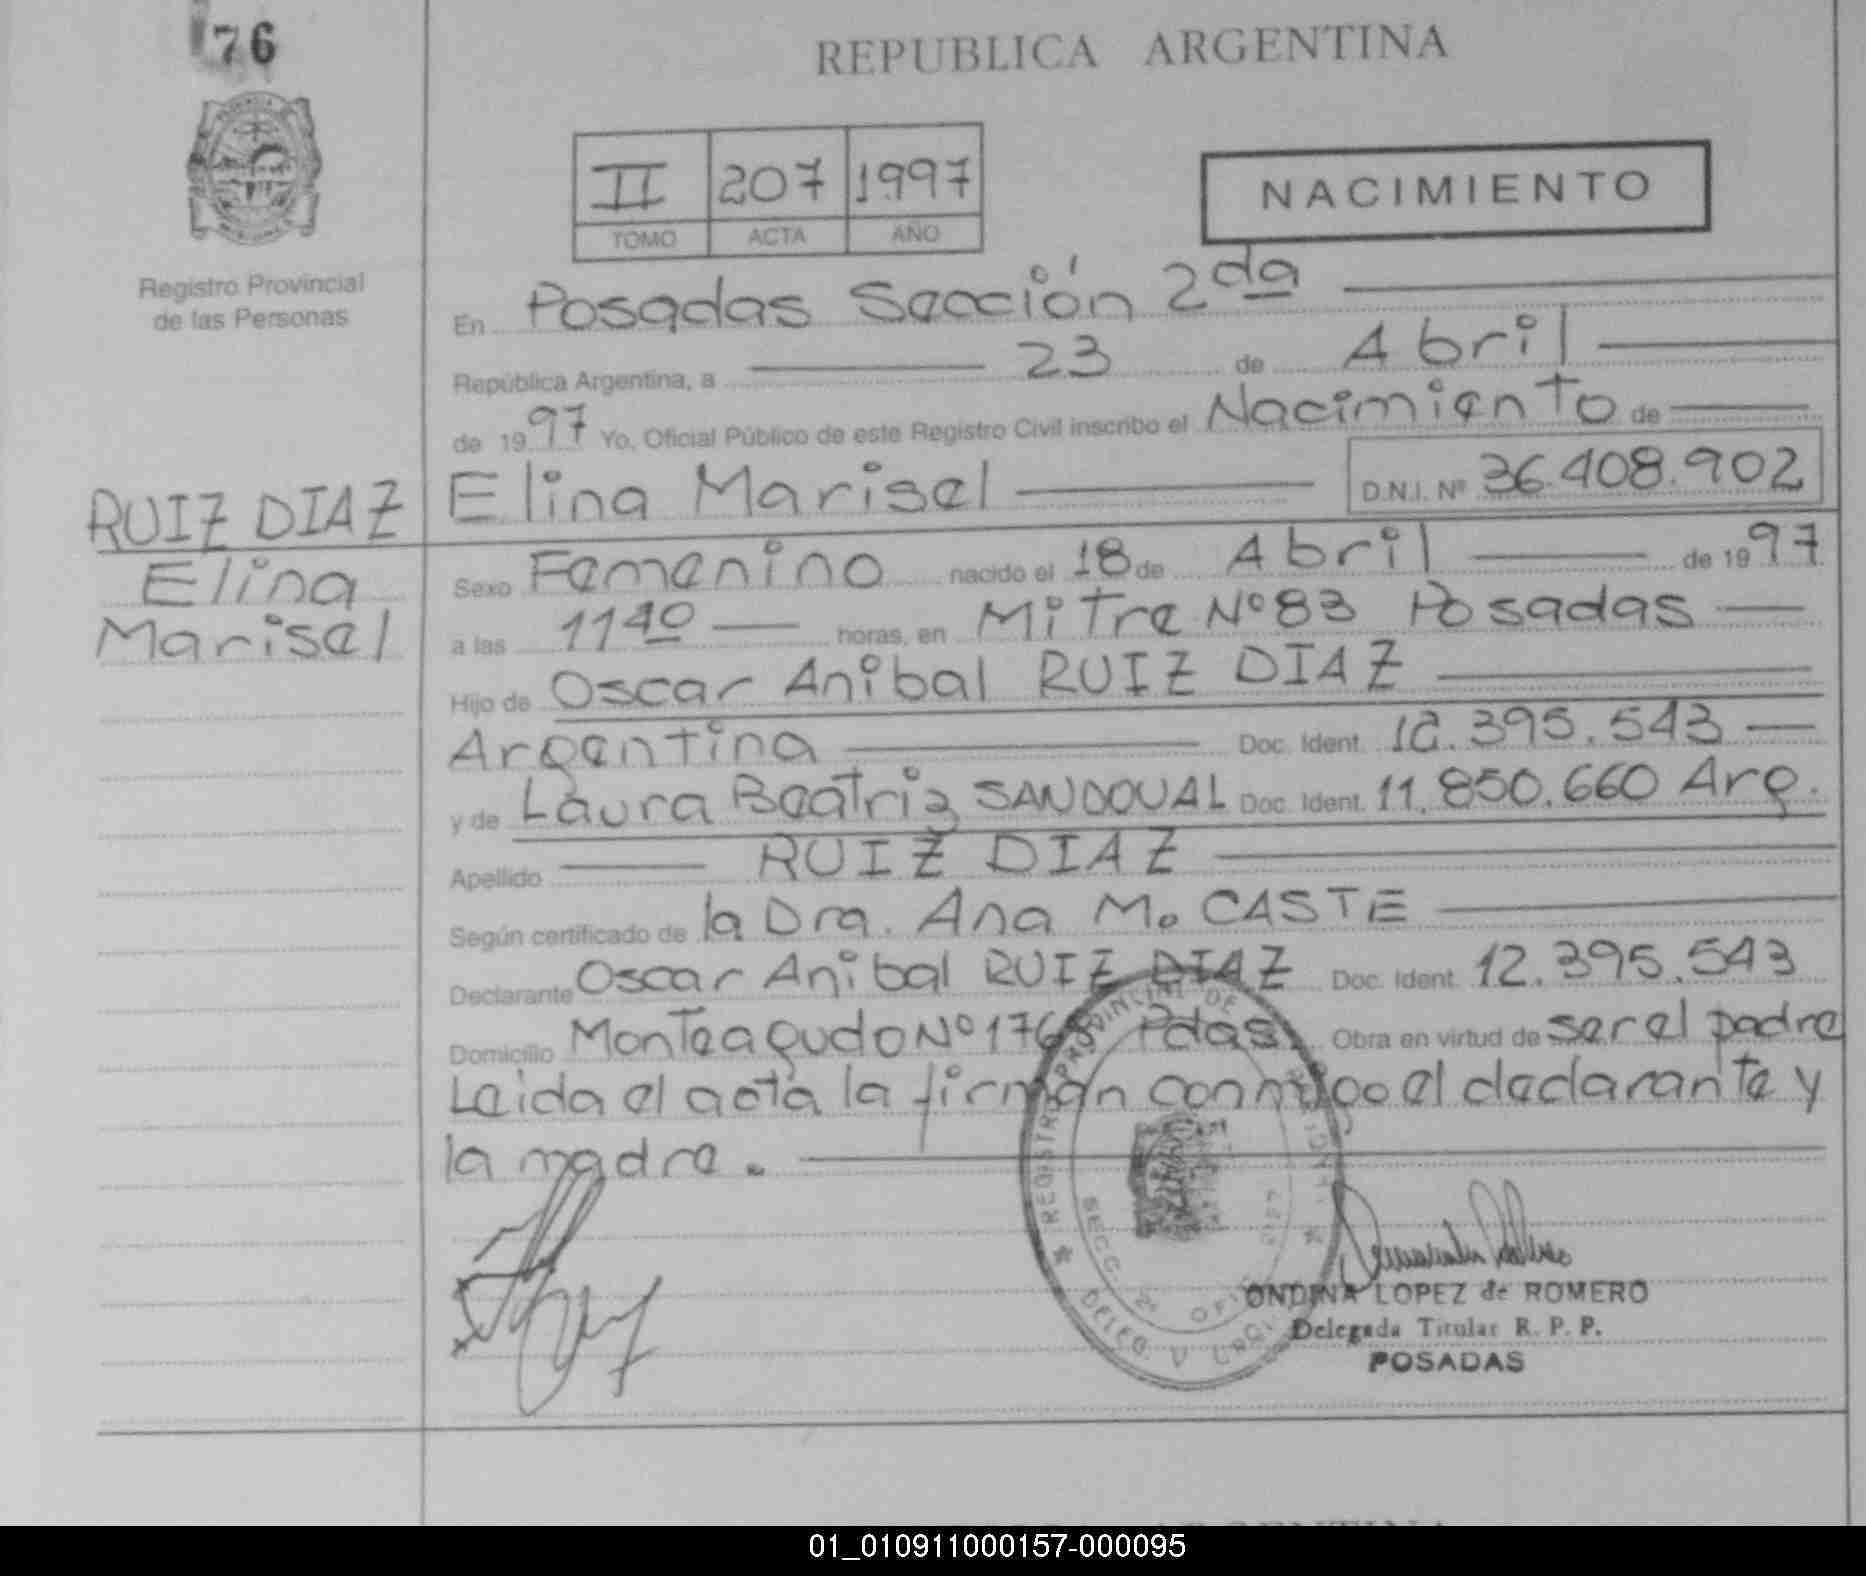 76
REPUBLICA ARGENTINA
II 207 1997
TOMO ACTA AÑO
NACIMIENTO
Registro Provincial
de las Personas
En Posadas Sección 2da
República Argentina, a 23 de Abril
de 1997 Yo, Oficial Público de este Registro Civil inscribo el Nacimiento de
RUIZ DIAZ
Elina
Marisel
Elina Marisel D.N.I. Nº 36.408.902
Sexo Femenino nacido el 18 de Abril de 1997
a las 11 40 horas, en Mitre Nº 83 Posadas
Hijo de Oscar Anibal RUIZ DIAZ
Argentina Doc. Ident. 12.395.543
y de Laura Beatriz SANDOVAL Doc. Ident. 11.850.660 Arg.
Apellido RUIZ DIAZ
Según certificado de la Dra. Ana M. CASTE
Declarante Oscar Anibal RUIZ DIAZ Doc. Ident. 12.395.543
Domicilio Monteagudo Nº Pdas. Obra en virtud de ser el padre
Leida el acta la firman conmigo el declarante y
la madre.
REGISTRO PROVINCIAL DE
SECC. 2ª
DELEG.
ONDINA LOPEZ de ROMERO
Delegada Titular R. P. P.
POSADAS
01_010911000157-000095